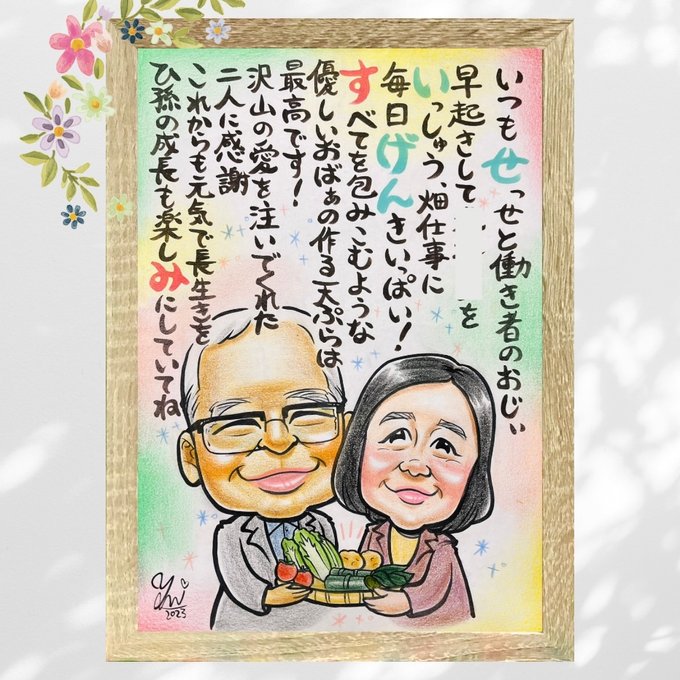 いつもせっせと働き者のおじぃ
早起きして
を
いっしゅう、畑仕事に
毎日げんきいっぱい！
すべてを包みこむような
優しいおばぁの作る天ぷらは
最高です！
沢山の愛を注いでくれた
二人に感謝
これからも元気で長生きを
ひ孫の成長も楽しみにしていてね
2023